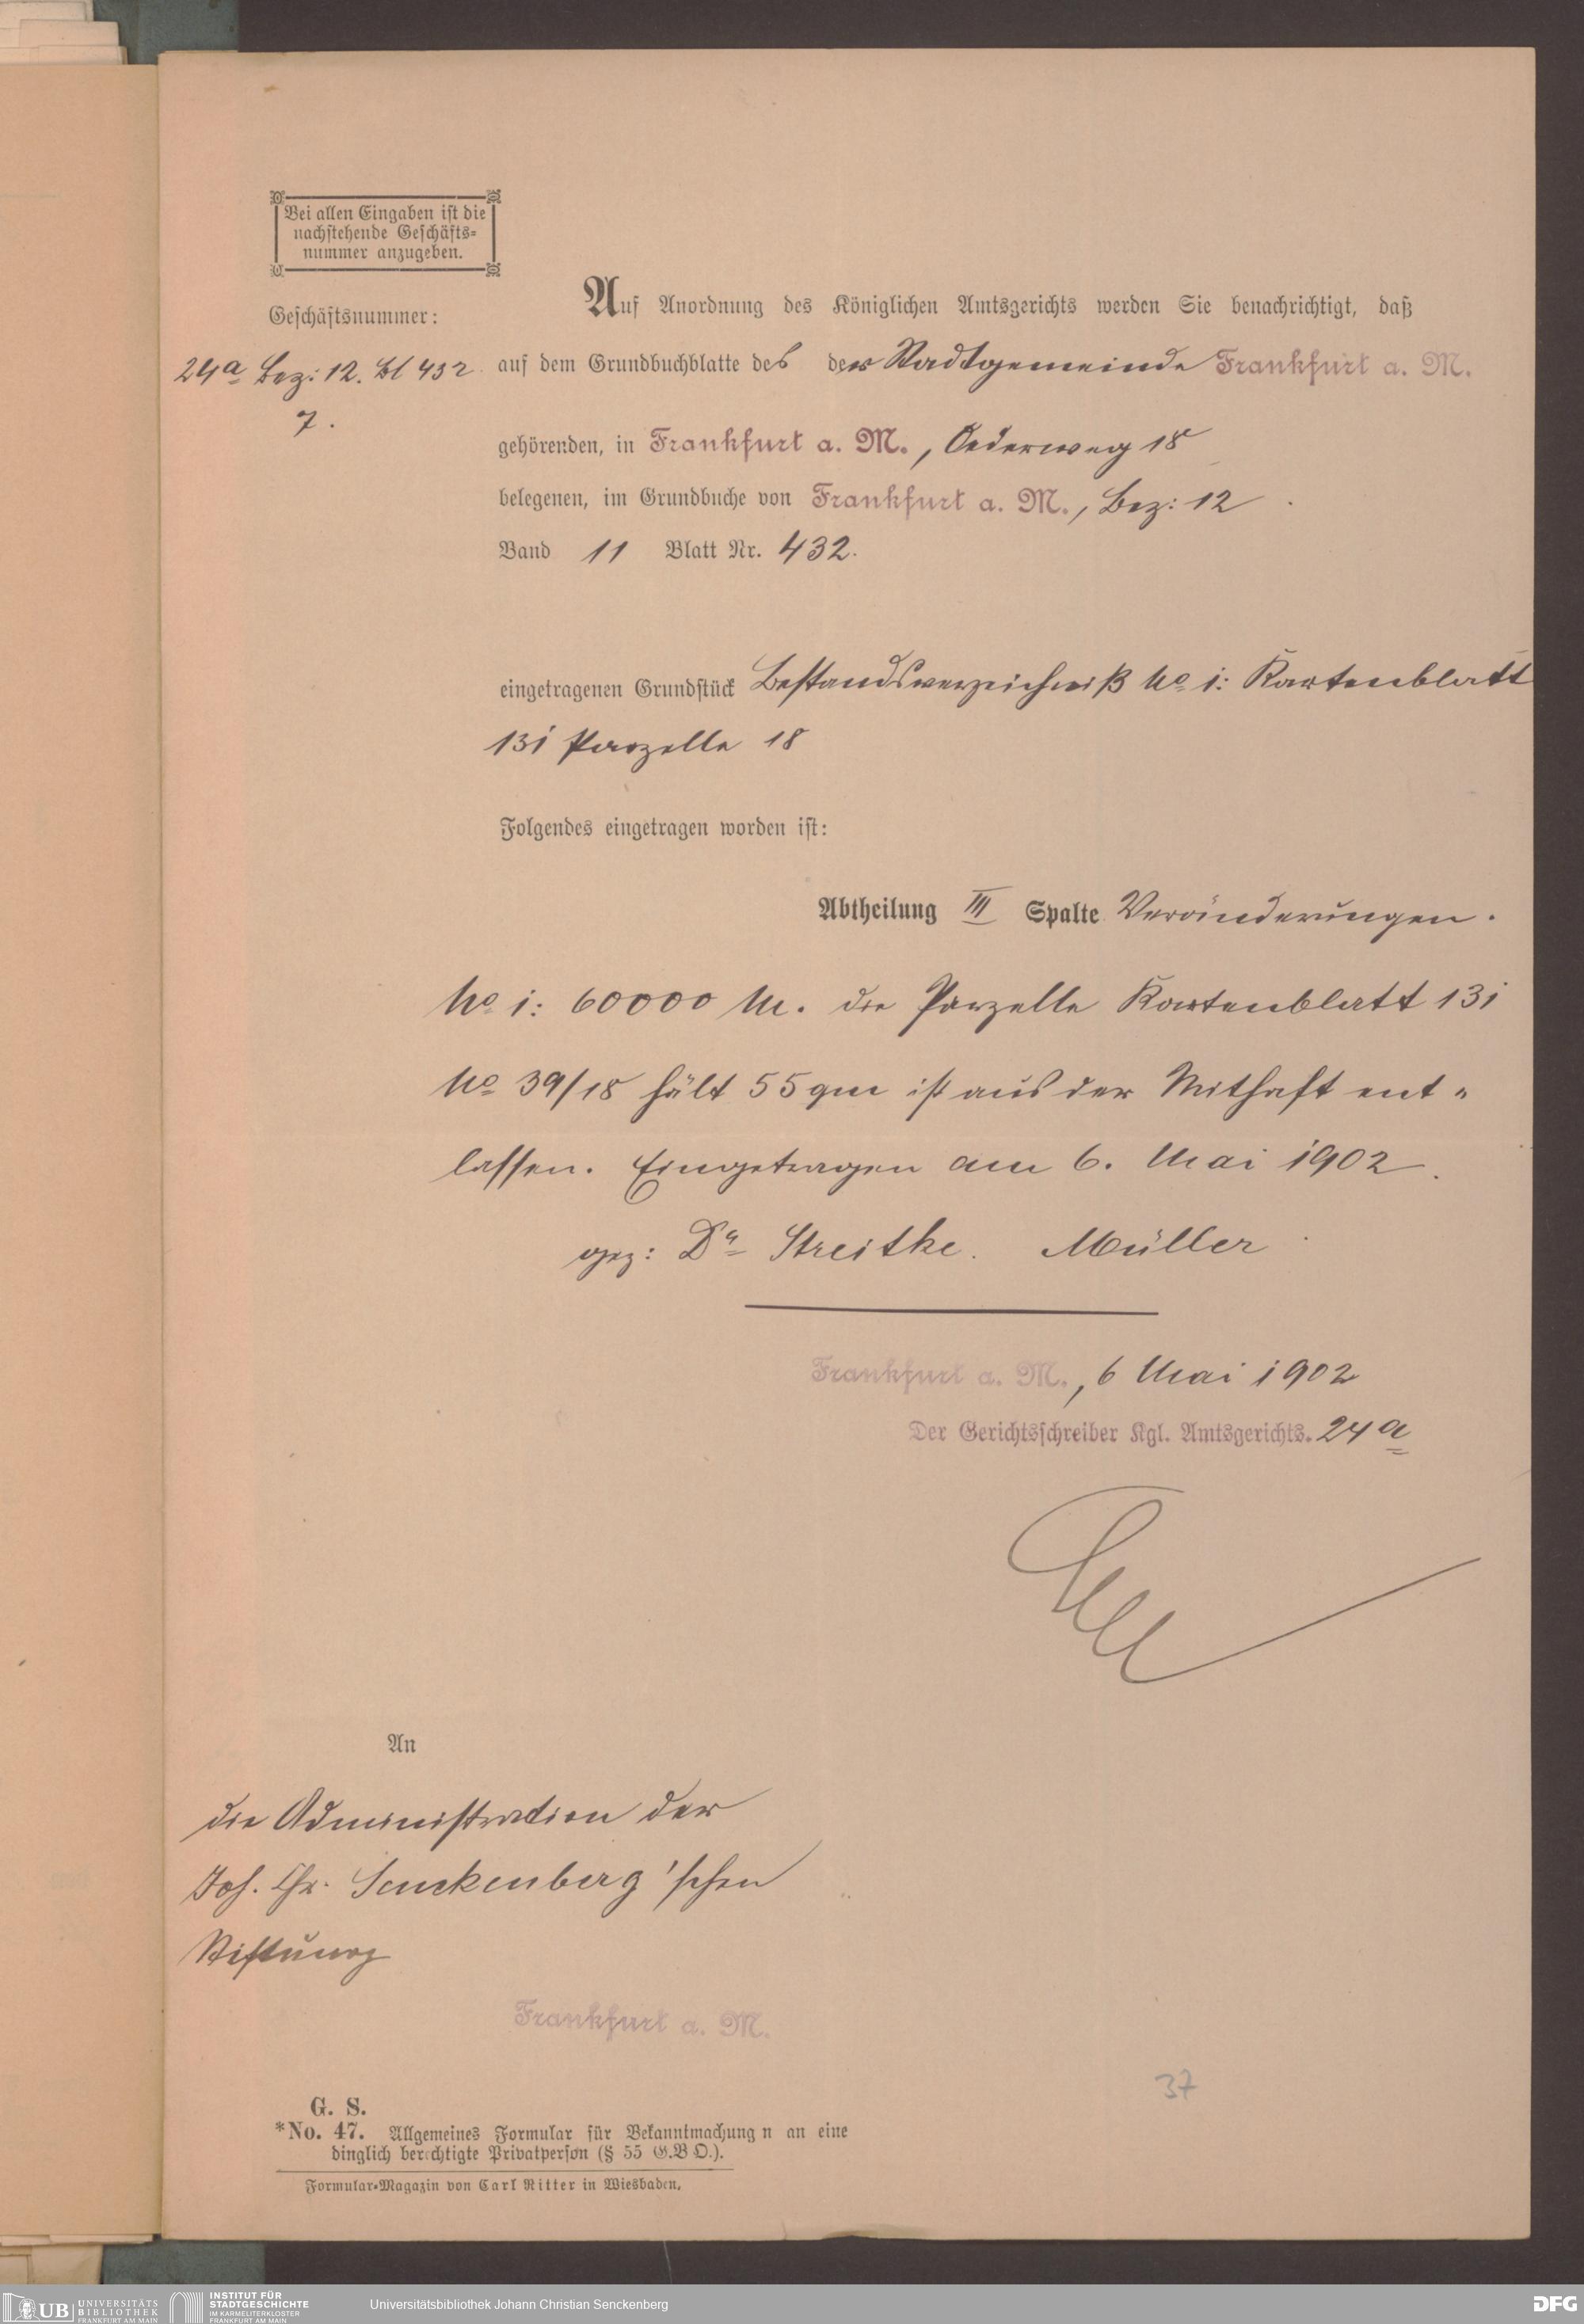 Bei allen Eingaben ist die
nachstehende Geschäfts-
nummer anzugeben.
Geschäftsnummer:
24a Bez: 12. Bl 432
7.
Auf Anordnung des Königlichen Amtsgerichts werden Sie benachrichtigt, daß
auf dem Grundbuchblatte des der Stadtgemeinde Frankfurt a. M.
gehörenden, in Frankfurt a. M., Oederweg 18
belegenen, im Grundbuche von Frankfurt a. M., Bez: 12
Band 11 Blatt Nr. 432.
eingetragenen Grundstück Bestandsverzeichniß No 1: Kartenblatt
131 Parzelle 18
Folgendes eingetragen worden ist:
Abtheilung III Spalte Veränderungen.
No 1: 60000 M. die Parzelle Kartenblatt 131
No 39/18 hält 55 qm ist aus der Mithaft ent-
lassen. Eingetragen am 6. Mai 1902.
gez: Dr Streitke. Müller
Frankfurt a. M., 6 Mai 1902
Der Gerichtsschreiber Kgl. Amtsgerichts. 24a
An
die Administration der
Joh. Chr. Senckenberg'schen
Stiftung
Frankfurt a. M.
37
G. S.
*No. 47. Allgemeines Formular für Bekanntmachung n an eine
dinglich berechtigte Privatperson (§ 55 G.B O.).
Formular-Magazin von Carl Ritter in Wiesbaden.
UB UNIVERSITÄTS
BIBLIOTHEK
FRANKFURT AM MAIN
INSTITUT FÜR
STADTGESCHICHTE
IM KARMELITERKLOSTER
FRANKFURT AM MAIN
Universitätsbibliothek Johann Christian Senckenberg
DFG